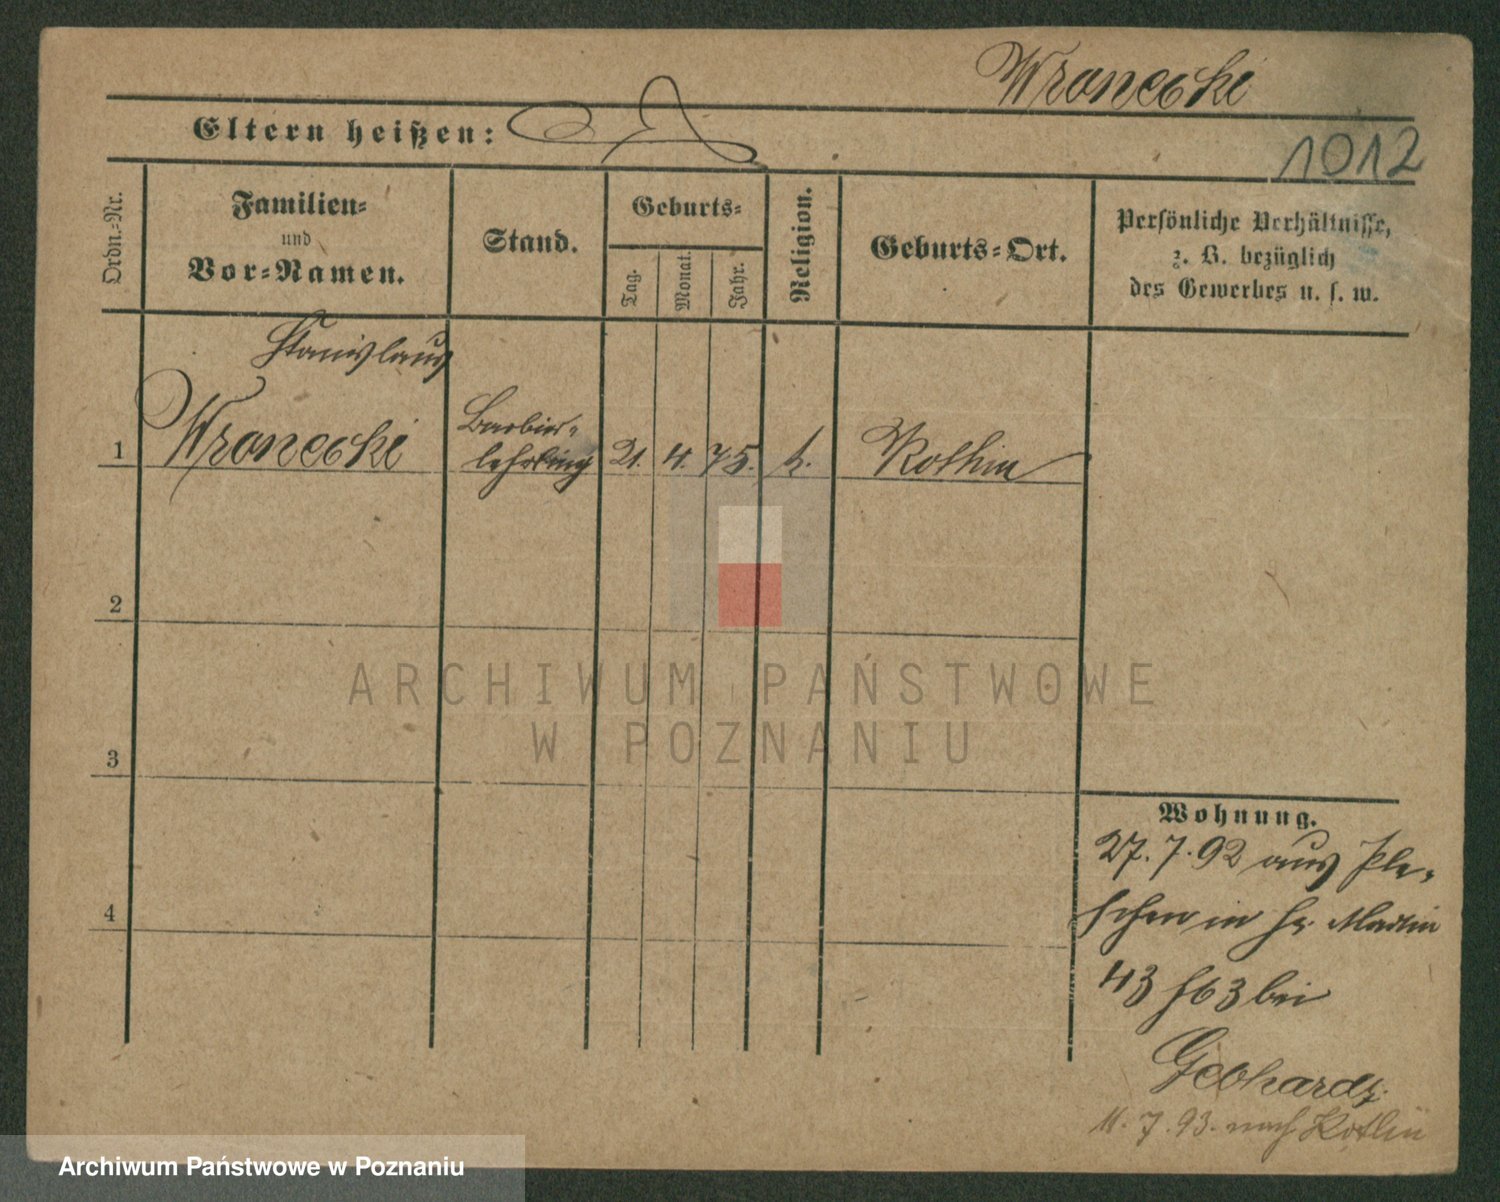 Wronecki
Eltern heißen:
1012
Ordn.-Nr.
Familien-
und
Vor-Namen.
Stand.
Geburts-
Tag.
Monat.
Jahr.
Religion.
Geburts-Ort.
Persönliche Verhältnisse,
z. B. bezüglich
des Gewerbes u. s. w.
Stanislaus
1 Wronecki Barbier-
lehrling 21. 4. 75. k. Kotlin
2
3
4
Wohnung.
27. 7. 92 aus Ple-
schen in St. Martin
43 bei
Gebhardt
11. 7. 93. nach Kotlin
ARCHIWUM PAŃSTWOWE
W POZNANIU
Archiwum Państwowe w Poznaniu